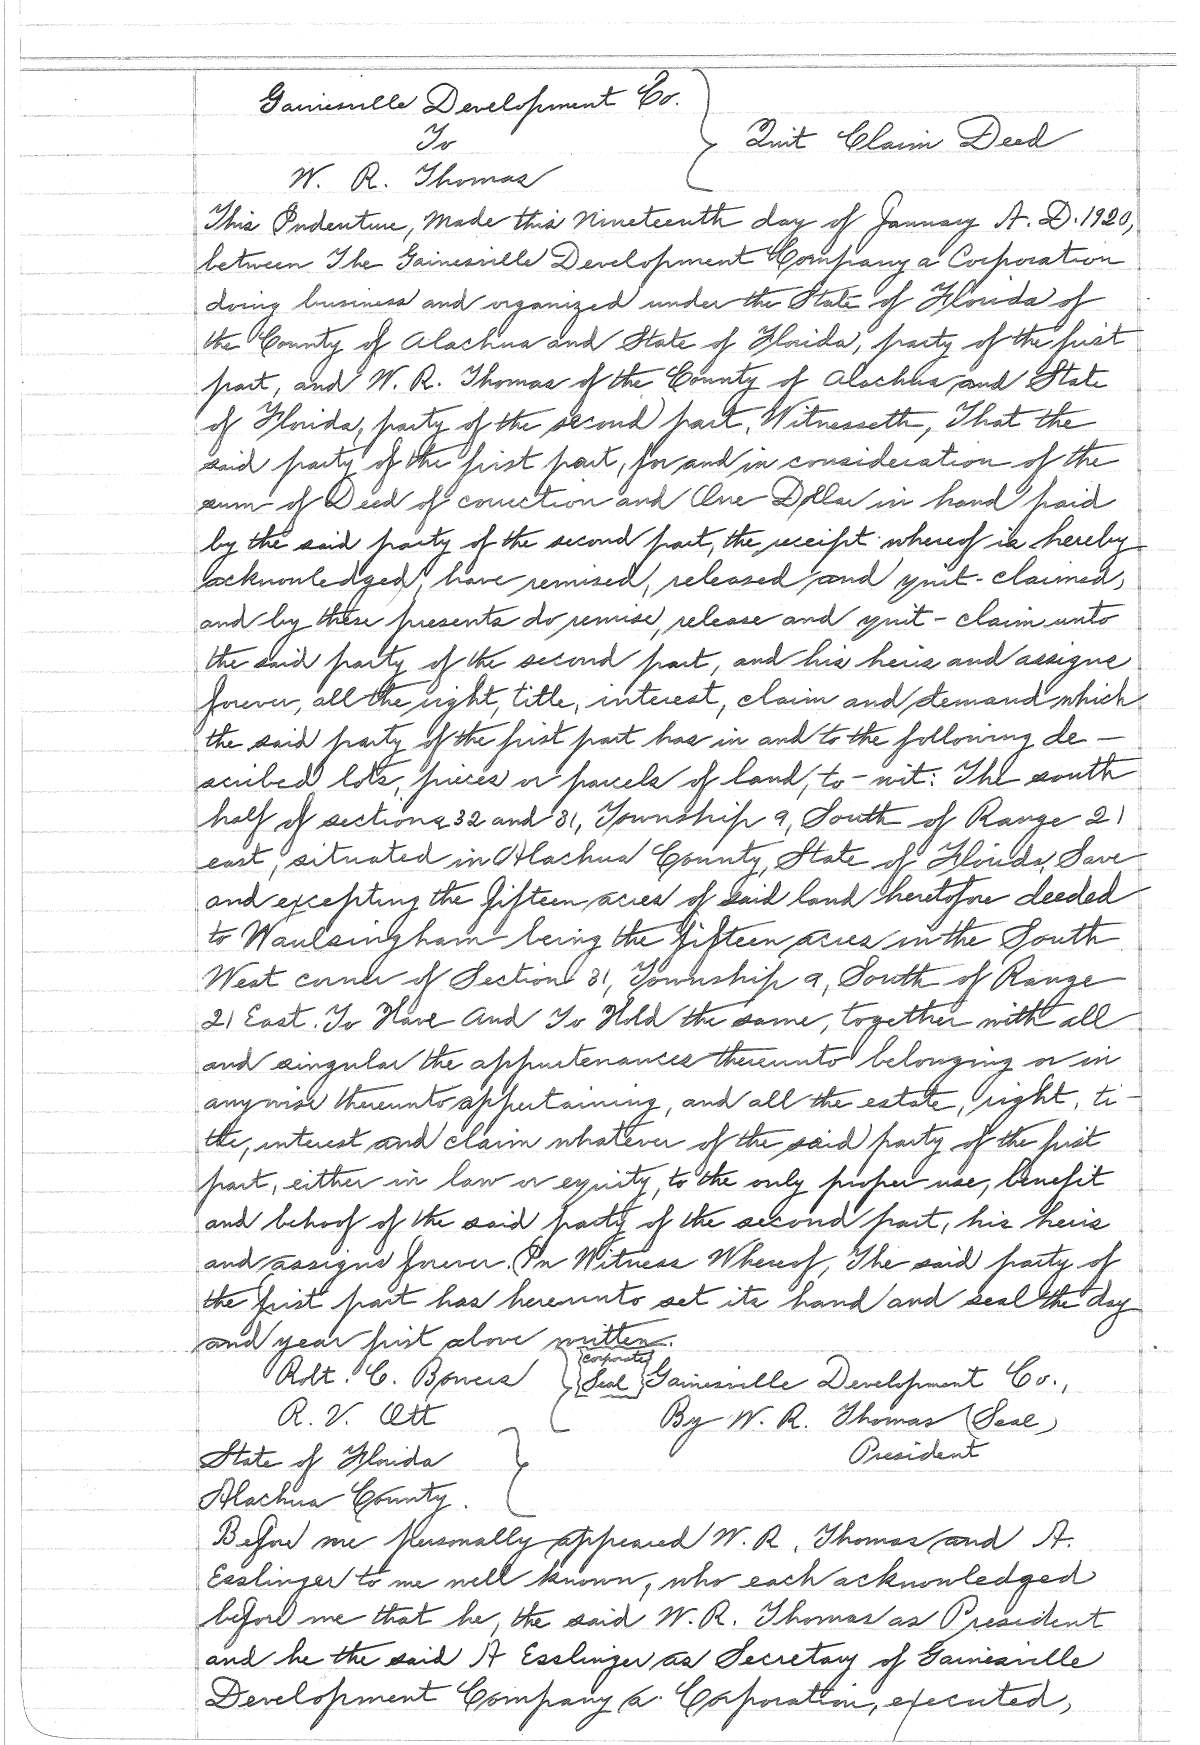 Gainesville Development Co.
To
Quit Claim Deed
W. R. Thomas
This Indenture, Made this Nineteenth day of January A. D. 1920,
between The Gainesville Development Company a Corporation
doing business and organized under the State of Florida of
the County of Alachua and State of Florida, party of the first
part, and W. R. Thomas of the County of Alachua and State
of Florida, party of the second part, Witnesseth, That the
said party of the first part, for and in consideration of the
sum of Deed of correction and One Dollar in hand paid
by the said party of the second part, the receipt whereof is hereby
acknowledged, have remised, released and quit-claimed,
and by these presents do remise, release and quit-claim unto
the said party of the second part, and his heirs and assigns
forever, all the right, title, interest, claim and demand which
the said party of the first part has in and to the following de-
scribed lots, pieces or parcels of land, to-wit: The south
half of sections 32 and 31, Township 9, South of Range 21
east, situated in Alachua County, State of Florida, Save
and excepting the fifteen acres of said land heretofore deeded
to Waulsingham being the fifteen acres in the South
West corner of Section 31, Township 9, South of Range
21 East. To Have And To Hold the same, together with all
and singular the appurtenances thereunto belonging or in
anywise thereunto appertaining, and all the estate, right, ti-
tle, interest and claim whatever of the said party of the first
part, either in law or equity, to the only proper use, benefit
and behoof of the said party of the second part, his heirs
and assigns forever. In Witness Whereof, The said party of
the first part has hereunto set its hand and seal the day
and year first above written.
Robt. C. Bowers (Corporate Seal) Gainesville Development Co.,
R. V. Ott By W. R. Thomas (Seal)
State of Florida President
Alachua County.
Before me personally appeared W. R. Thomas and A.
Esslinger to me well known, who each acknowledged
before me that he, the said W. R. Thomas as President
and he the said A Esslinger as Secretary of Gainesville
Development Company a Corporation, executed,